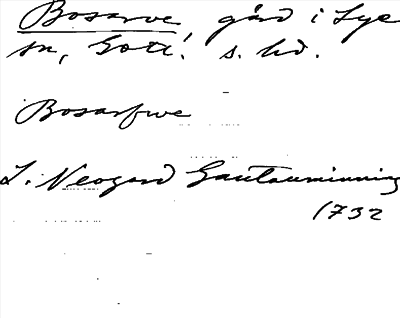 Bosarve, gård i Lye
sn, Gotl. s. hd.
Bosarfwe
L. Neogard Gautauminning
1732